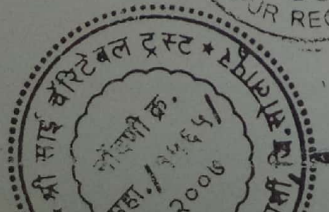 UR REC
श्री साई चॅरिटेबल ट्रस्ट ★
जि. सोलापूर
नोंदणी क्र.
महा./१५६५/
२००७